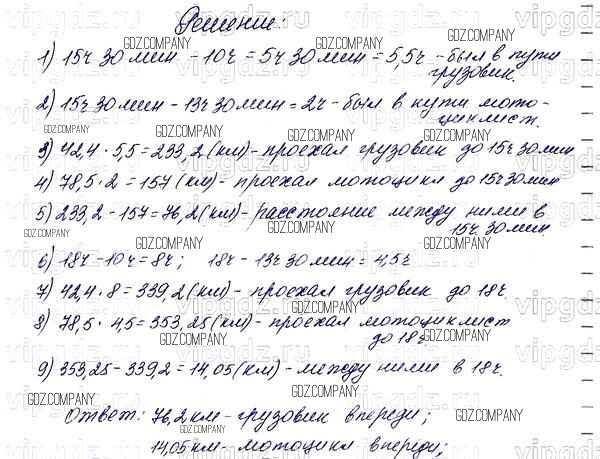 Решение:
1) 15ч 30 мин - 10ч = 5ч 30 мин = 5,5ч - был в пути
грузовик.
2) 15ч 30 мин - 13ч 30 мин = 2ч - был в пути мото-
циклист.
3) 42,4 · 5,5 = 233,2 (км) - проехал грузовик до 15ч 30 мин
4) 78,5 · 2 = 157 (км) - проехал мотоцикл до 15ч 30 мин
5) 233,2 - 157 = 76,2 (км) - расстояние между ними в
15ч 30 мин.
6) 18ч - 10ч = 8ч; 18ч - 13ч 30 мин = 4,5ч
7) 42,4 · 8 = 339,2 (км) - проехал грузовик до 18ч.
8) 78,5 · 4,5 = 353,25 (км) - проехал мотоциклист
до 18ч
9) 353,25 - 339,2 = 14,05 (км) - между ними в 18ч.
Ответ: 76,2 км - грузовик впереди;
14,05 км - мотоцикл впереди;
GDZ.COMPANY
vipgdz.ru